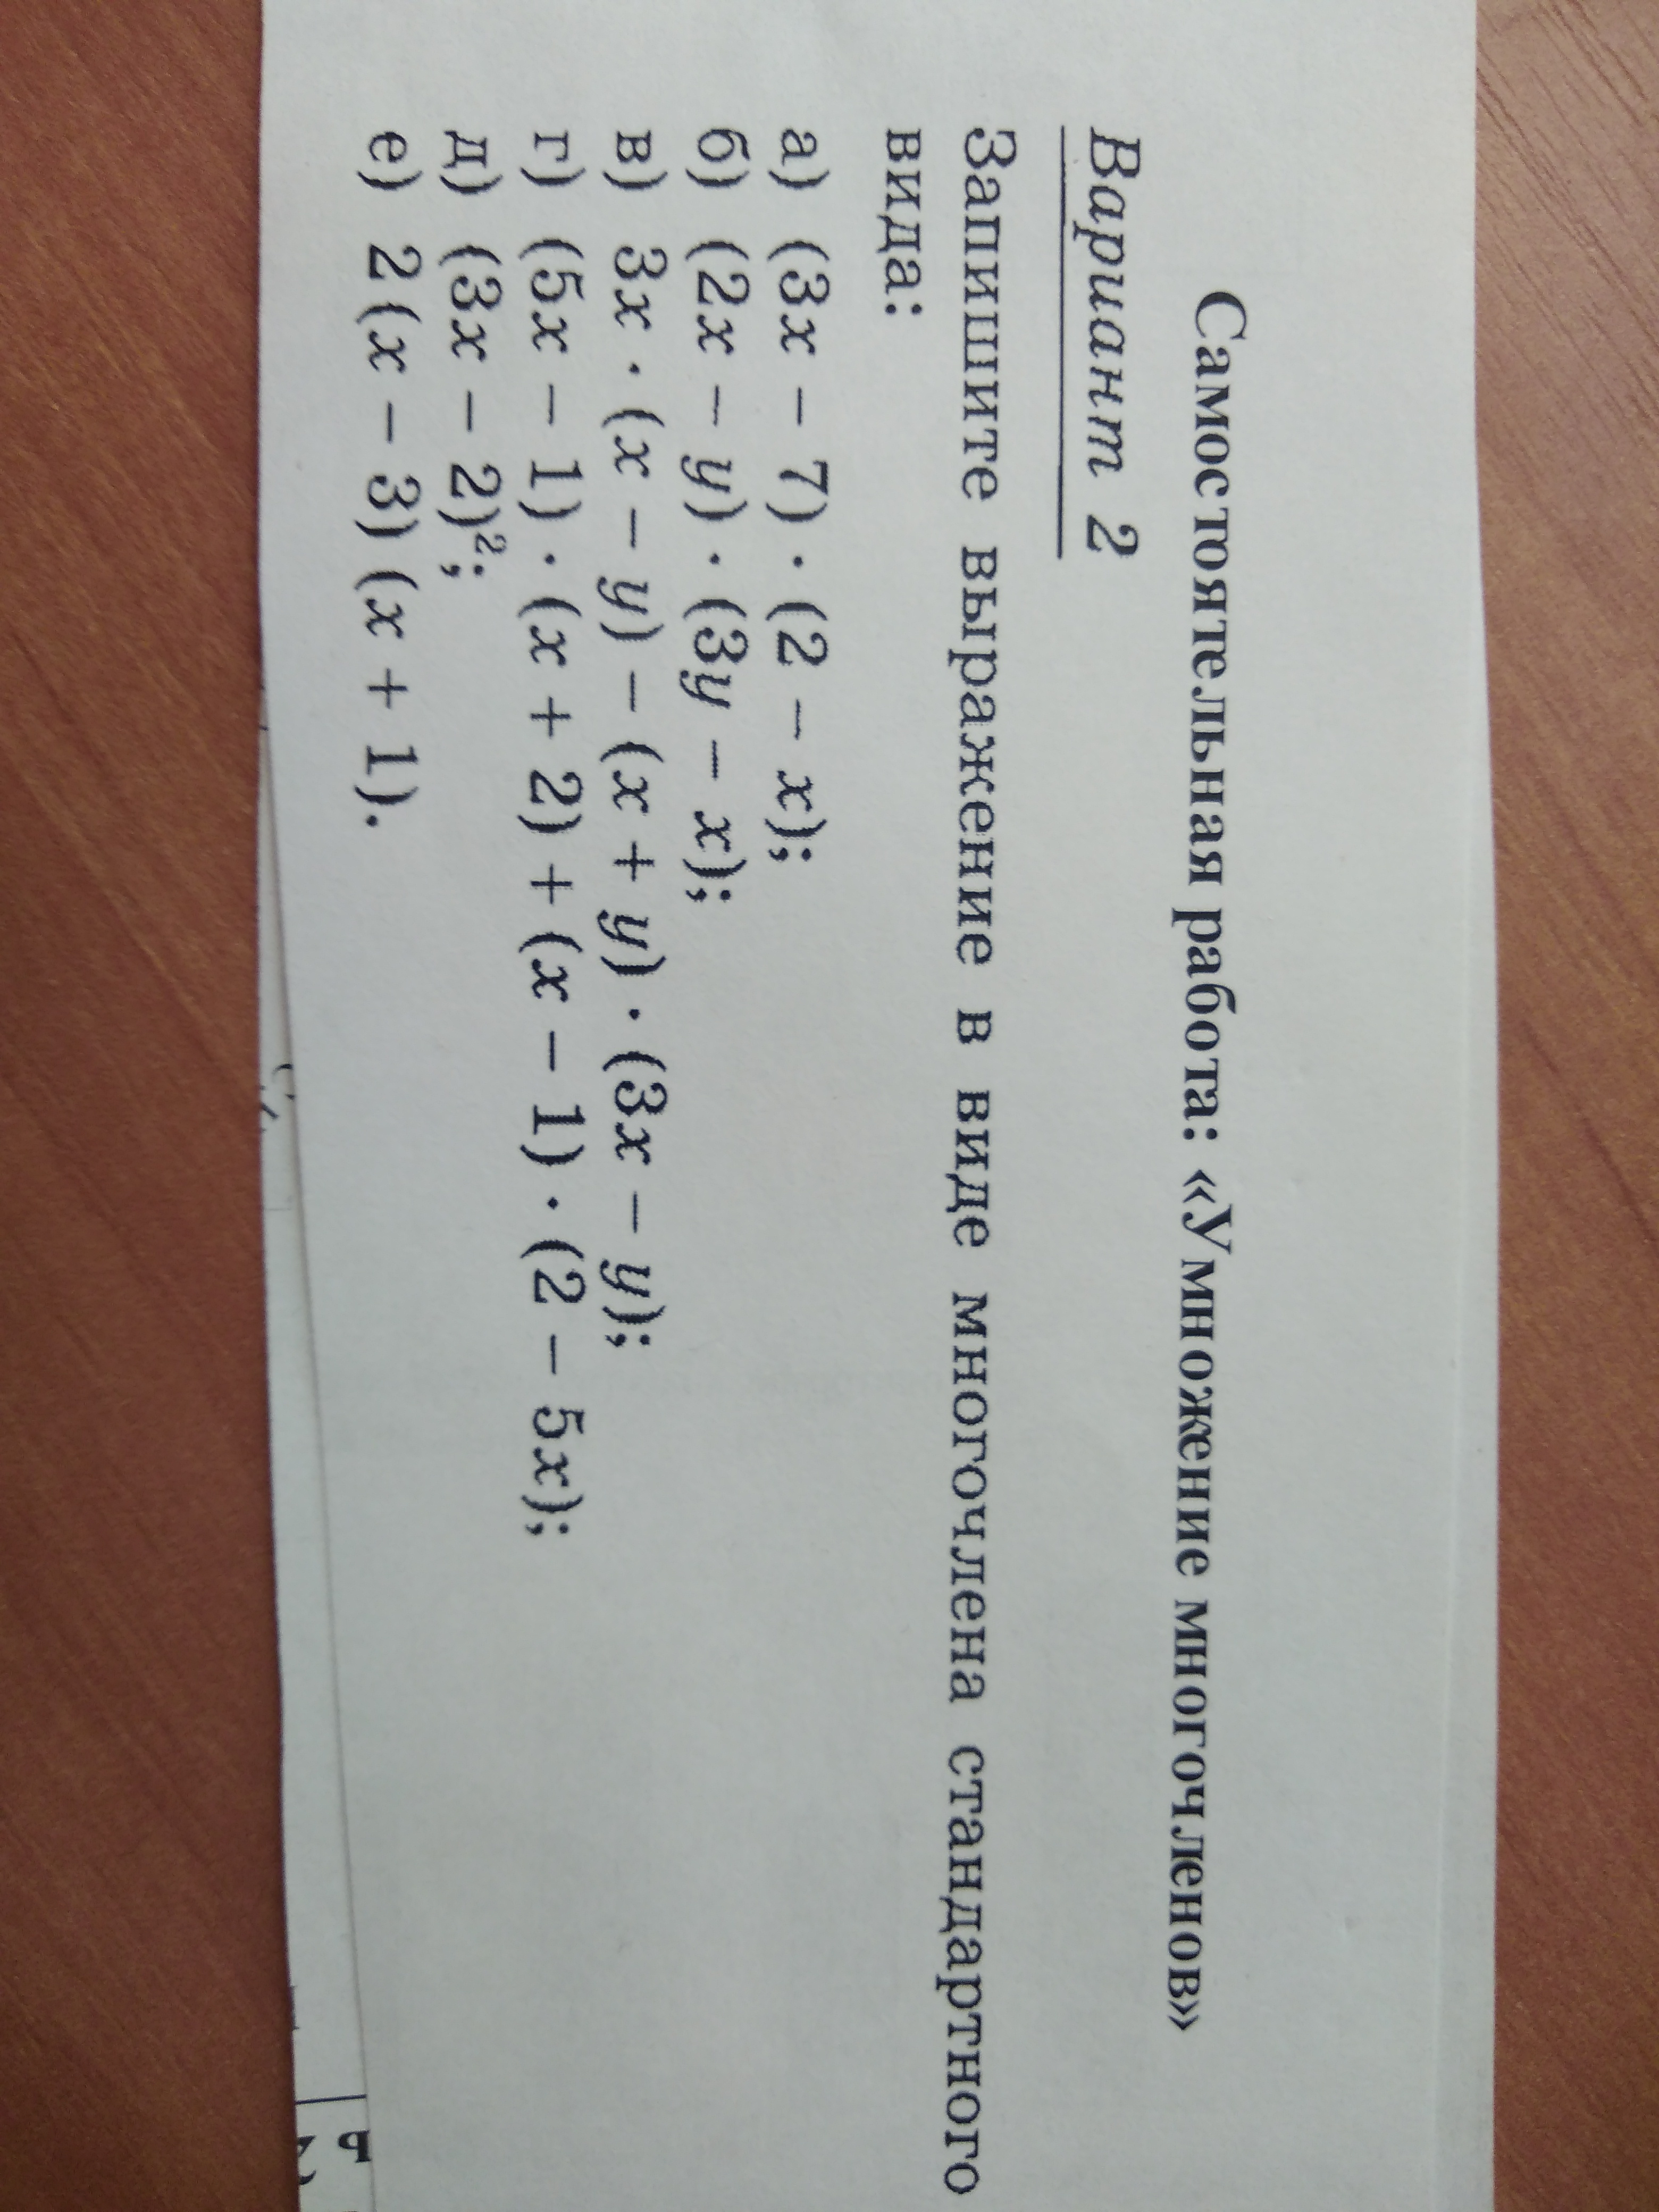 Самостоятельная работа: «Умножение многочленов»
Вариант 2
Запишите выражение в виде многочлена стандартного
вида:
а) (3x − 7) · (2 − x);
б) (2x − y) · (3y − x);
в) 3x · (x − y) − (x + y) · (3x − y);
г) (5x − 1) · (x + 2) + (x − 1) · (2 − 5x);
д) (3x − 2)²;
е) 2(x − 3)(x + 1).